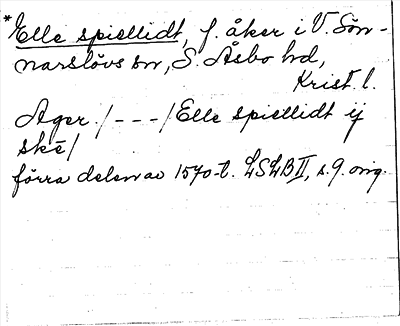 *Elle spiellidt, f. åker i V. Sön-
narslövs sn, S. Åsbo hd,
Krist. l.
Ager /---/ Elle spiellidt ij
ske/
förra delen av 1570-t. LSLB II, s. 9. orig.